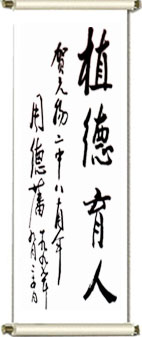 植德育人
賀无锡二中八十周年
周德藩